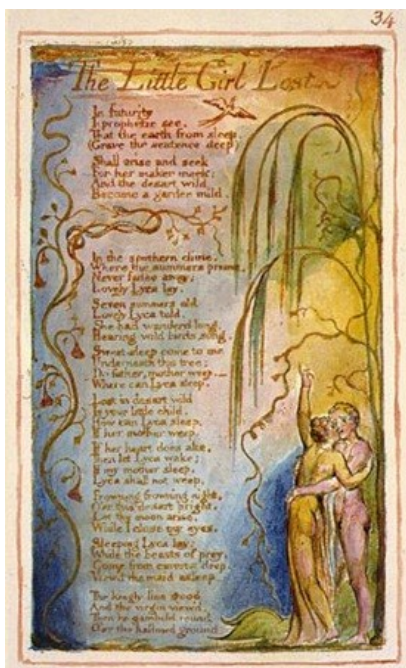 34
The Little Girl Lost
In futurity
I prophetic see.
That the earth from sleep.
(Grave the sentence deep)
Shall arise and seek
For her maker meek:
And the desart wild
Become a garden mild.
In the southern clime,
Where the summers prime,
Never fades away;
Lovely Lyca lay.
Seven summers old
Lovely Lyca told,
She had wanderd long,
Hearing wild birds song.
Sweet sleep come to me
Underneath this tree;
Do father, mother weep.—
Where can Lyca sleep.
Lost in desart wild
Is your little child.
How can Lyca sleep,
If her mother weep.
If her heart does ake,
Then let Lyca wake;
If my mother sleep,
Lyca shall not weep.
Frowning frowning night,
O'er this desart bright,
Let thy moon arise,
While I close my eyes.
Sleeping Lyca lay;
While the beasts of prey,
Come from caverns deep,
View'd the maid asleep
The kingly lion stood
And the virgin view'd,
Then he gambold round
O'er the hallowd ground